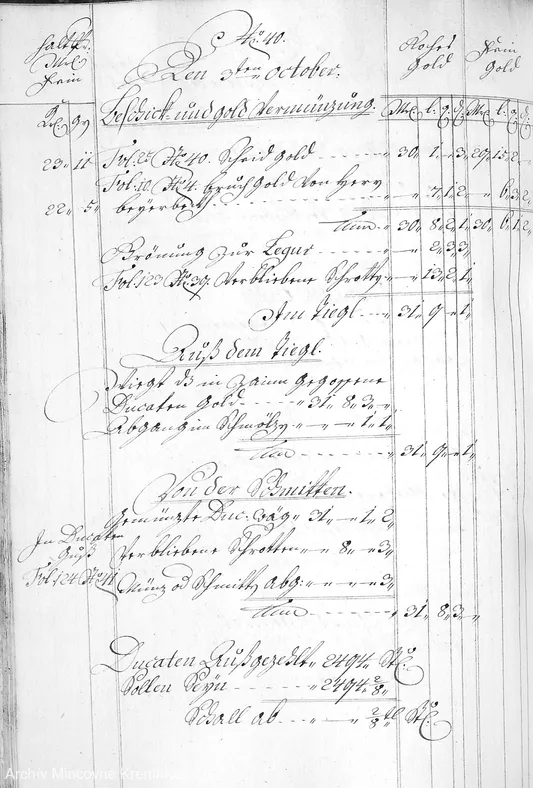 No. 40.
Den 3ten October.
halt pr.
Mrk
fein
Roches
Gold
Fein
Gold
Beschick- und Gold Vermünzung.
Mk. l. q. d. Mk. l. q. d.
23 11 Fol. 25 No. 40. Scheid Gold 30 1 3 29 15 2
Fol. 10 No. 4. bruch Gold von Herrn
22 5 7 1 2 6 3 2
Sum 30 8 2 1 30 6 1 2
Brönung zur Legur 2 3 3
Fol. 123 No. 39 Verbliebene Schrotten 13 2 1
Im Tiegl 31 9 1
Auß dem Tiegl.
in Zainn gegossene
Ducaten Gold 31 8 3
Abgang im Schmölzen 1 1
Sum 31 9 1
Von der Schmitten.
Gemünzte Duc. wäg 31 1 2
In Ducaten
Guß
Fol. 124 No. 41
Verbliebene Schrotten 8 3
Münz od Schmitt Abg: 3
Sum 31 8 3
Ducaten Außgezehlt 2494 Stk.
Sollen Seyn 2494 2/8
Schall ab 2/8 tl Stk.
Archiv Mincovne Kremnica